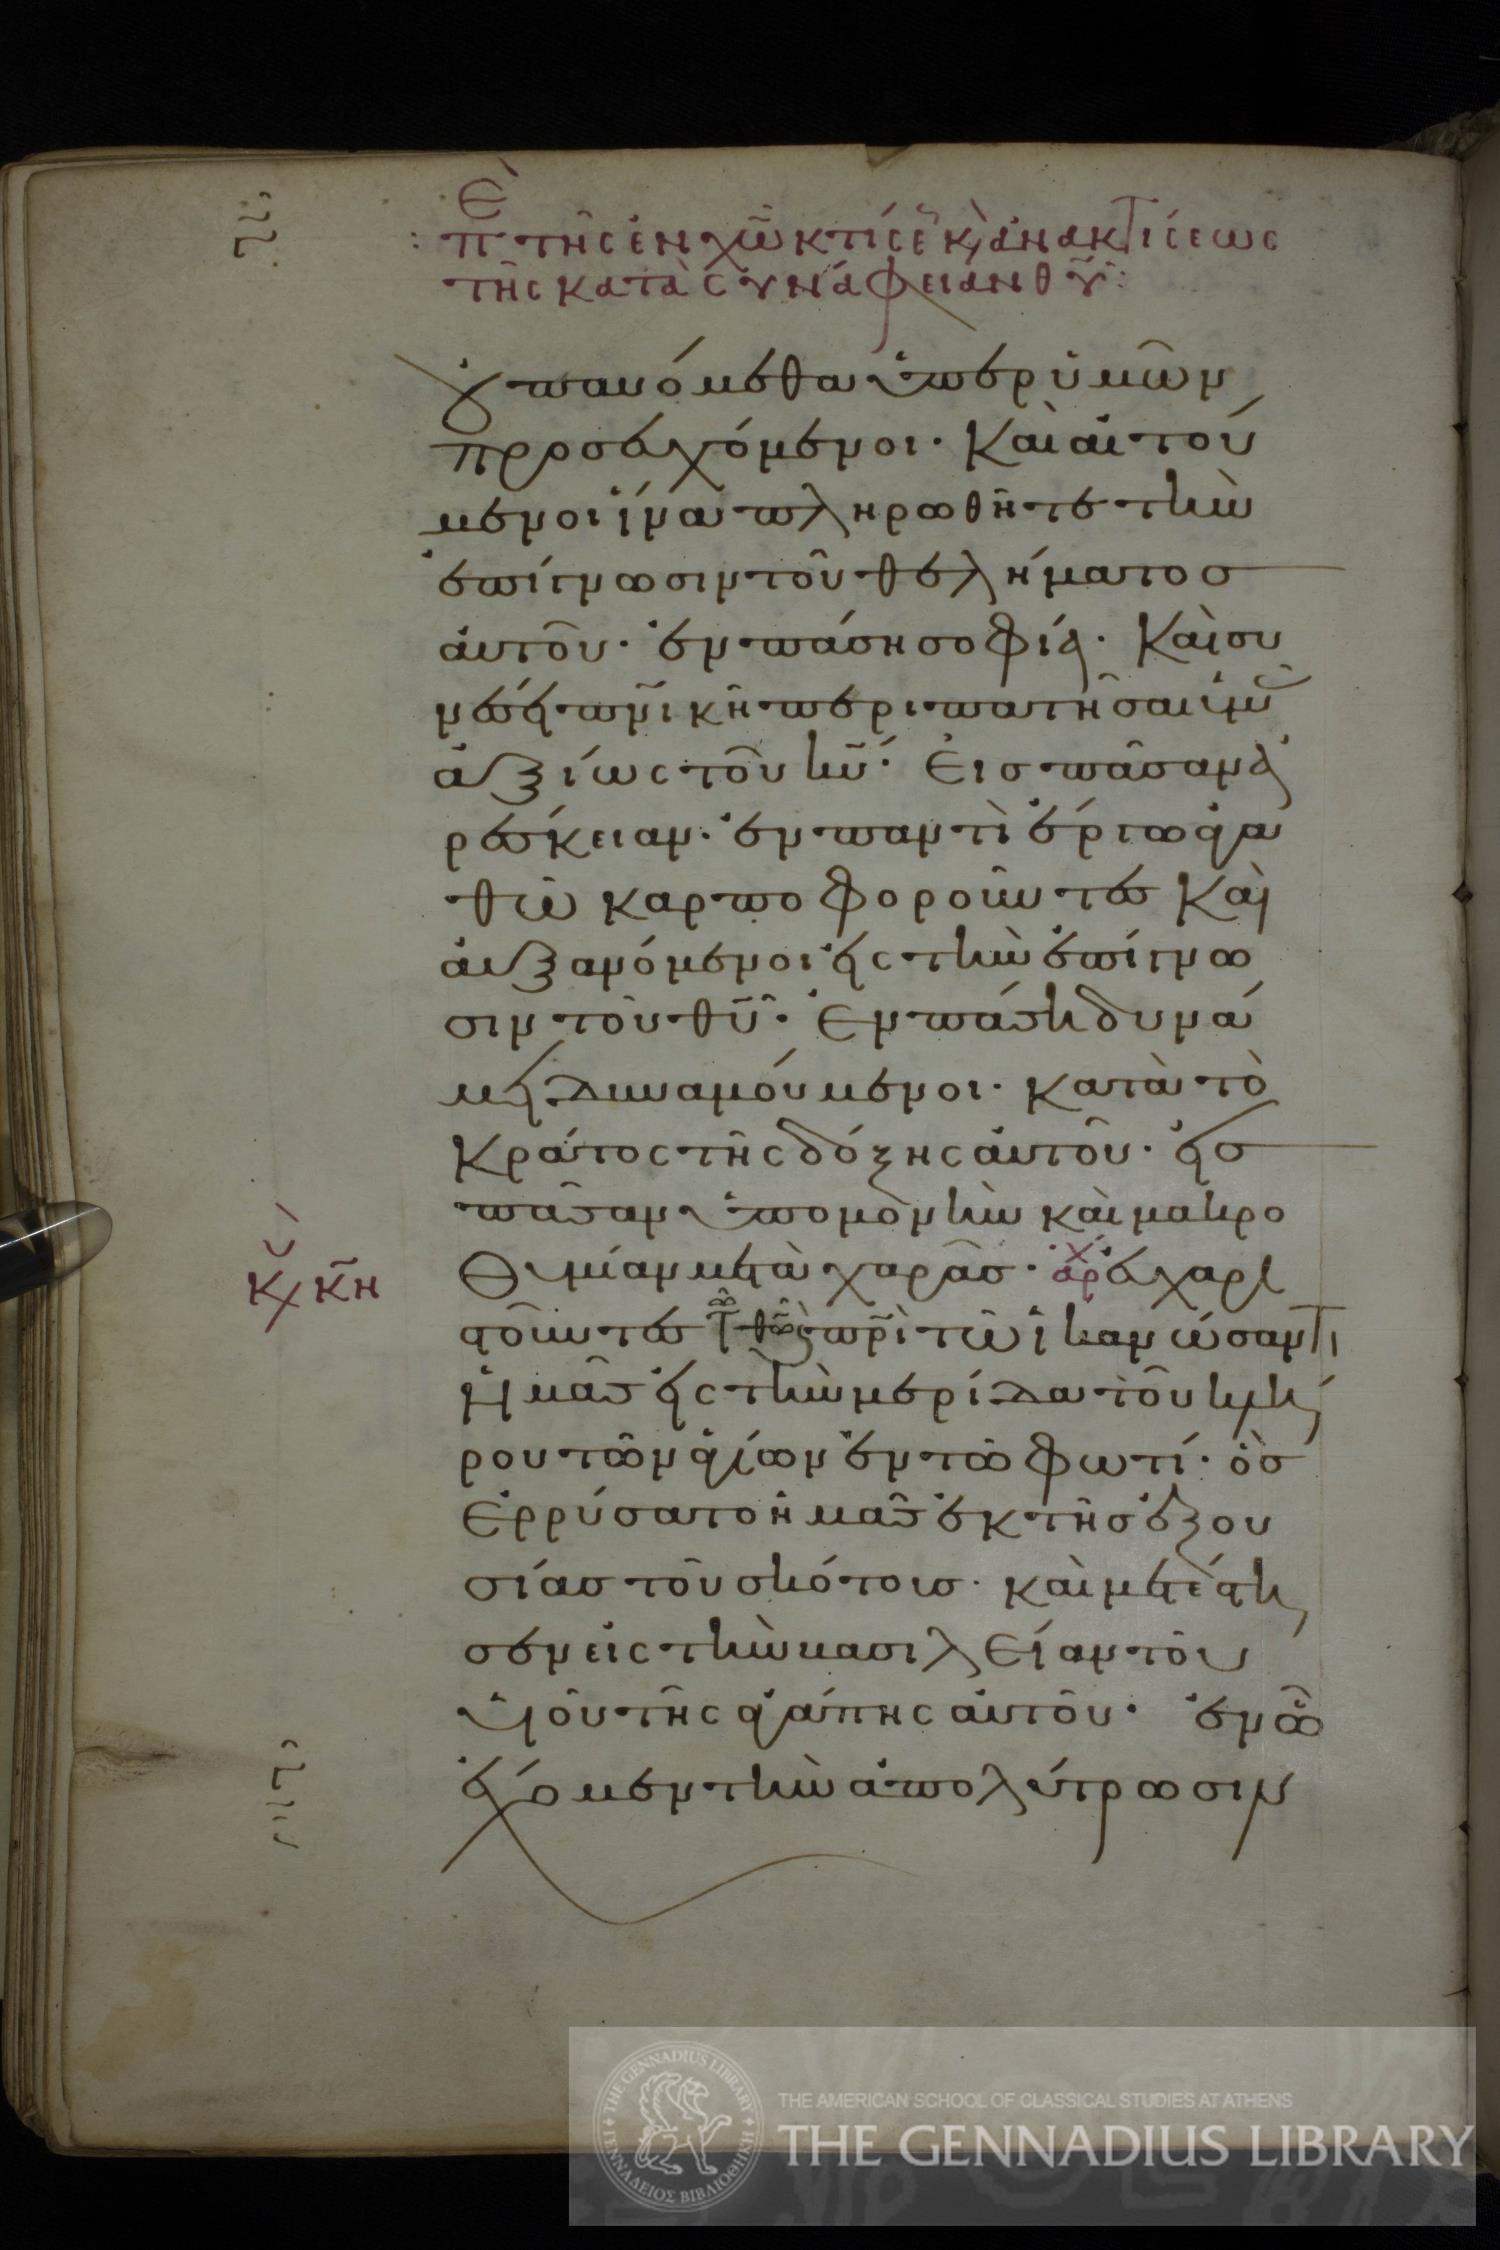 Ἐ
π τῆς ἐν χῶ κτίσε κ(αὶ) ἀνακτίσεως
τῆς κατὰ συνάφειαν θῦ:
οὐ παυόμεθα ὑπὲρ ὑμῶν
προσευχόμενοι· Καὶ αἰτού
μενοι ἵνα πληρωθῆτε τὴν
ἐπίγνωσιν τοῦ θελήματος
αὐτοῦ· ἐν πάσῃ σοφίᾳ· Καὶ συ
νέσει πνικῆ περιπατῆσαι ὑμᾶ
ἀξίως τοῦ κῦ· Εἰς πᾶσαν ἀ
ρέσκειαν· ἐν παντὶ ἔργω ἀγα
θῶ καρποφοροῦντες Καὶ
αὐξανόμενοι εἰς τὴν ἐπίγνω
σιν τοῦ θῦ· Ἐν πάση δυνά
μει δυναμούμενοι· κατὰ τὸ
Κράτος τῆς δόξης αὐτοῦ· εἰς
πᾶσαν ὑπομονὴν καὶ μακρο
θυμίαν μετὰ χαρᾶς· ἀρχ εὐχαρι
κυ κη
στοῦντες τῶ θῶ κ(αὶ) πρὶ τῶ ἱκανώσαντι
ἡμᾶς εἰς τὴν μερίδα τοῦ κλή
ρου τῶν ἁγίων ἐν τῶ φωτί· ὃς
Ἐρρύσατο ἡμᾶς ἐκ τῆς ἐξου
σίας τοῦ σκότους· καὶ μετέστη
σεν εἰς τὴν βασιλείαν τοῦ
υἱοῦ τῆς ἀγάπης αὐτοῦ· ἐν ὧ
ἔχομεν τὴν ἀπολύτρωσιν
THE GENNADIUS LIBRARY
ΓΕΝΝΑΔΕΙΟΣ ΒΙΒΛΙΟΘΗΚΗ
THE AMERICAN SCHOOL OF CLASSICAL STUDIES AT ATHENS
THE GENNADIUS LIBRARY